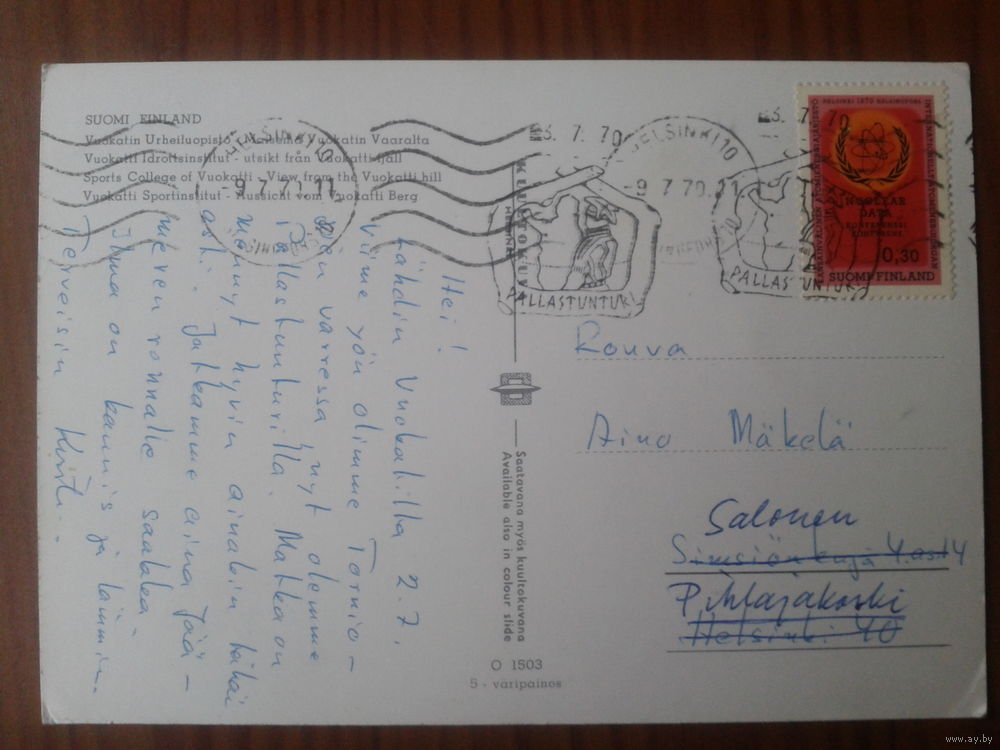 SUOMI FINLAND
Vuokatin Urheiluopisto - Maisema Vuokatin Vaaralta
Vuokatti Idrottsinstitut - utsikt från Vuokatti fjäll
Sports College of Vuokatti - View from the Vuokatti hill
Vuokatti Sportinstitut - Aussicht vom Vuokatti Berg
Hei!
Lähdin Vuokatilla 2.7.
Viime yön olimme Tornio-
varressa nyt olemme
Pallastunturilla. Matka on
mennyt hyvin ainakin tähän
asti. Jatkamme aina Jää-
meren rannalle saakka.
Ilma on kaunis ja lämmin.
Terveisin Kirsti.
Saatavana myös kuultokuvana
Available also in colour slide
O 1503
5 - väripainos
HELSINKI 10
-9.7.70.11
PALLASTUNTURI
HELSINKI 10
-9.7.70.11
PALLASTUNTURI
HELSINKI 1970 HELSINGFORS
NUCLEAR
DATA
KONFERENSSI
KONFERENS
0,30
SUOMI-FINLAND
Rouva
Aino Mäkelä
Salonen
Simsiönkuja 4. as 14
Pihlajakoski
Helsinki 40
www.ay.by